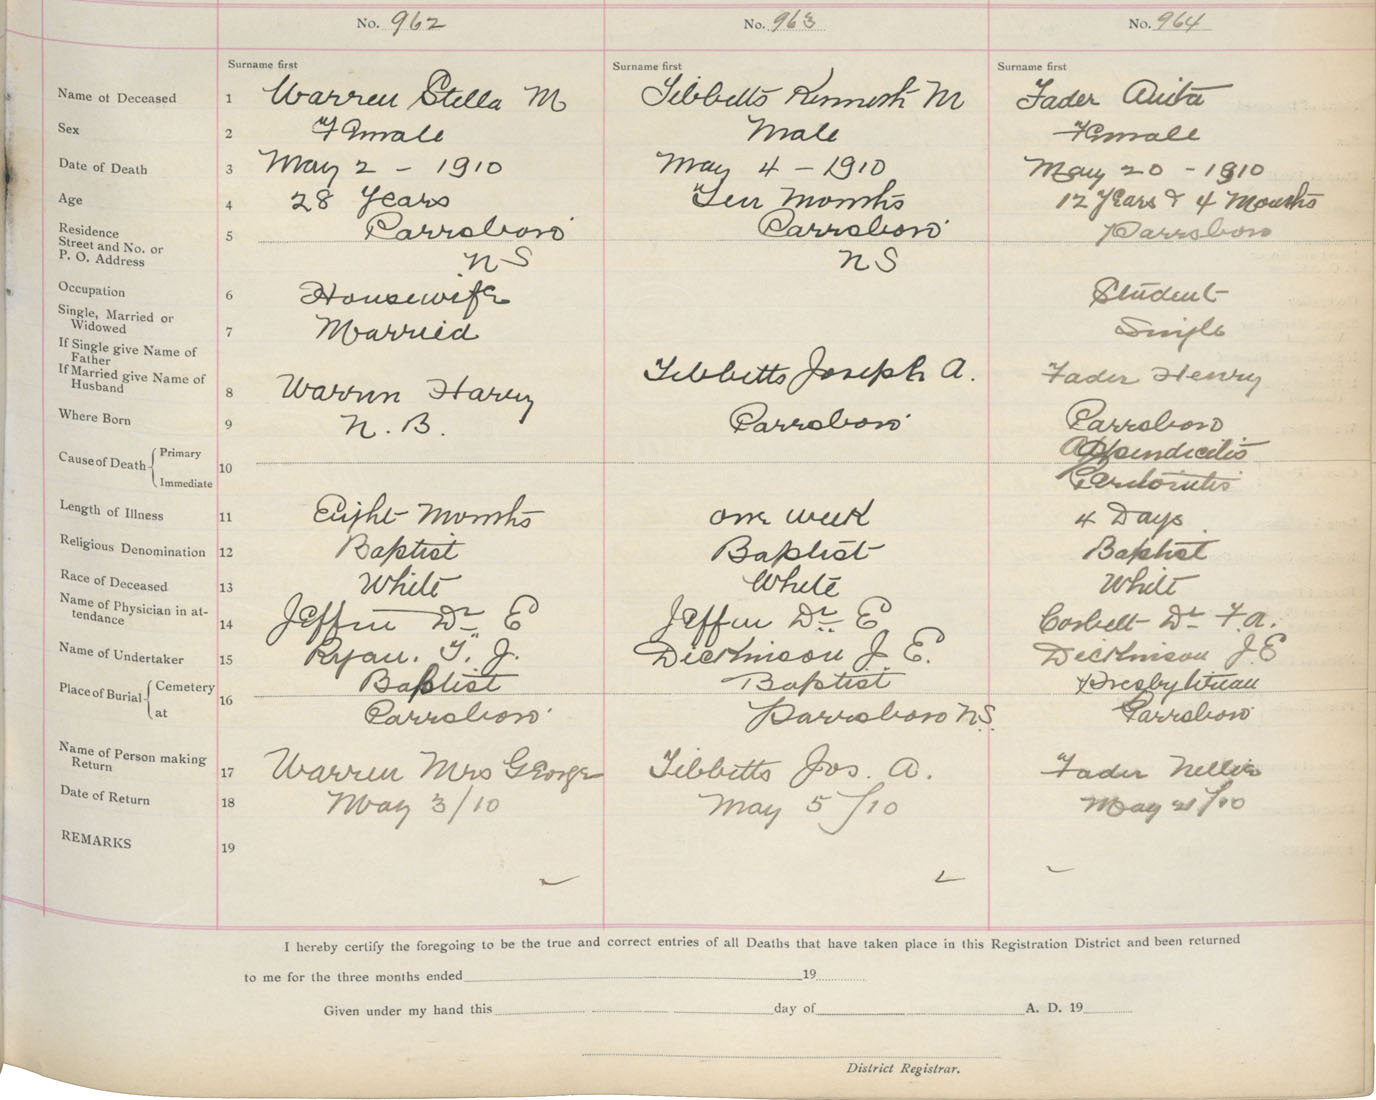 No. 962 No. 963 No. 964
Surname first Surname first Surname first
Name of Deceased 1 Warren Stella M Tibbetts Kenneth M Fader Anita
Sex 2 Female Male Female
Date of Death 3 May 2 - 1910 May 4 - 1910 May 20 - 1910
Age 4 28 Years Ten Months 12 Years & 4 Months
Residence
Street and No. or
P. O. Address 5 Parrsboro Parrsboro Parrsboro
NS NS
Occupation 6 Housewife Student
Single, Married or
Widowed 7 Married Single
If Single give Name of
Father
If Married give Name of
Husband 8 Warren Harry Tibbetts Joseph A. Fader Henry
Where Born 9 N. B. Parrsboro Parrsboro
Cause of Death { Primary Appendicitis
10
Immediate Peritonitis
Length of Illness 11 Eight Months one week 4 Days
Religious Denomination 12 Baptist Baptist Baptist
Race of Deceased 13 White White White
Name of Physician in at-
tendance 14 Jeffers Dr E Jeffers Dr E Corbett Dr F. A.
Name of Undertaker 15 Ryan. T. J. Dickinson J. E. Dickinson J E
Place of Burial { Cemetery Baptist Baptist Presbyterian
16
at Parrsboro Parrsboro N.S. Parrsboro
Name of Person making
Return 17 Warren Mrs George Tibbetts Jos. A. Fader Nellie
Date of Return 18 May 3/10 May 5/10 May 21/10
REMARKS 19
I hereby certify the foregoing to be the true and correct entries of all Deaths that have taken place in this Registration District and been returned
to me for the three months ended 19
Given under my hand this day of A. D. 19
District Registrar.